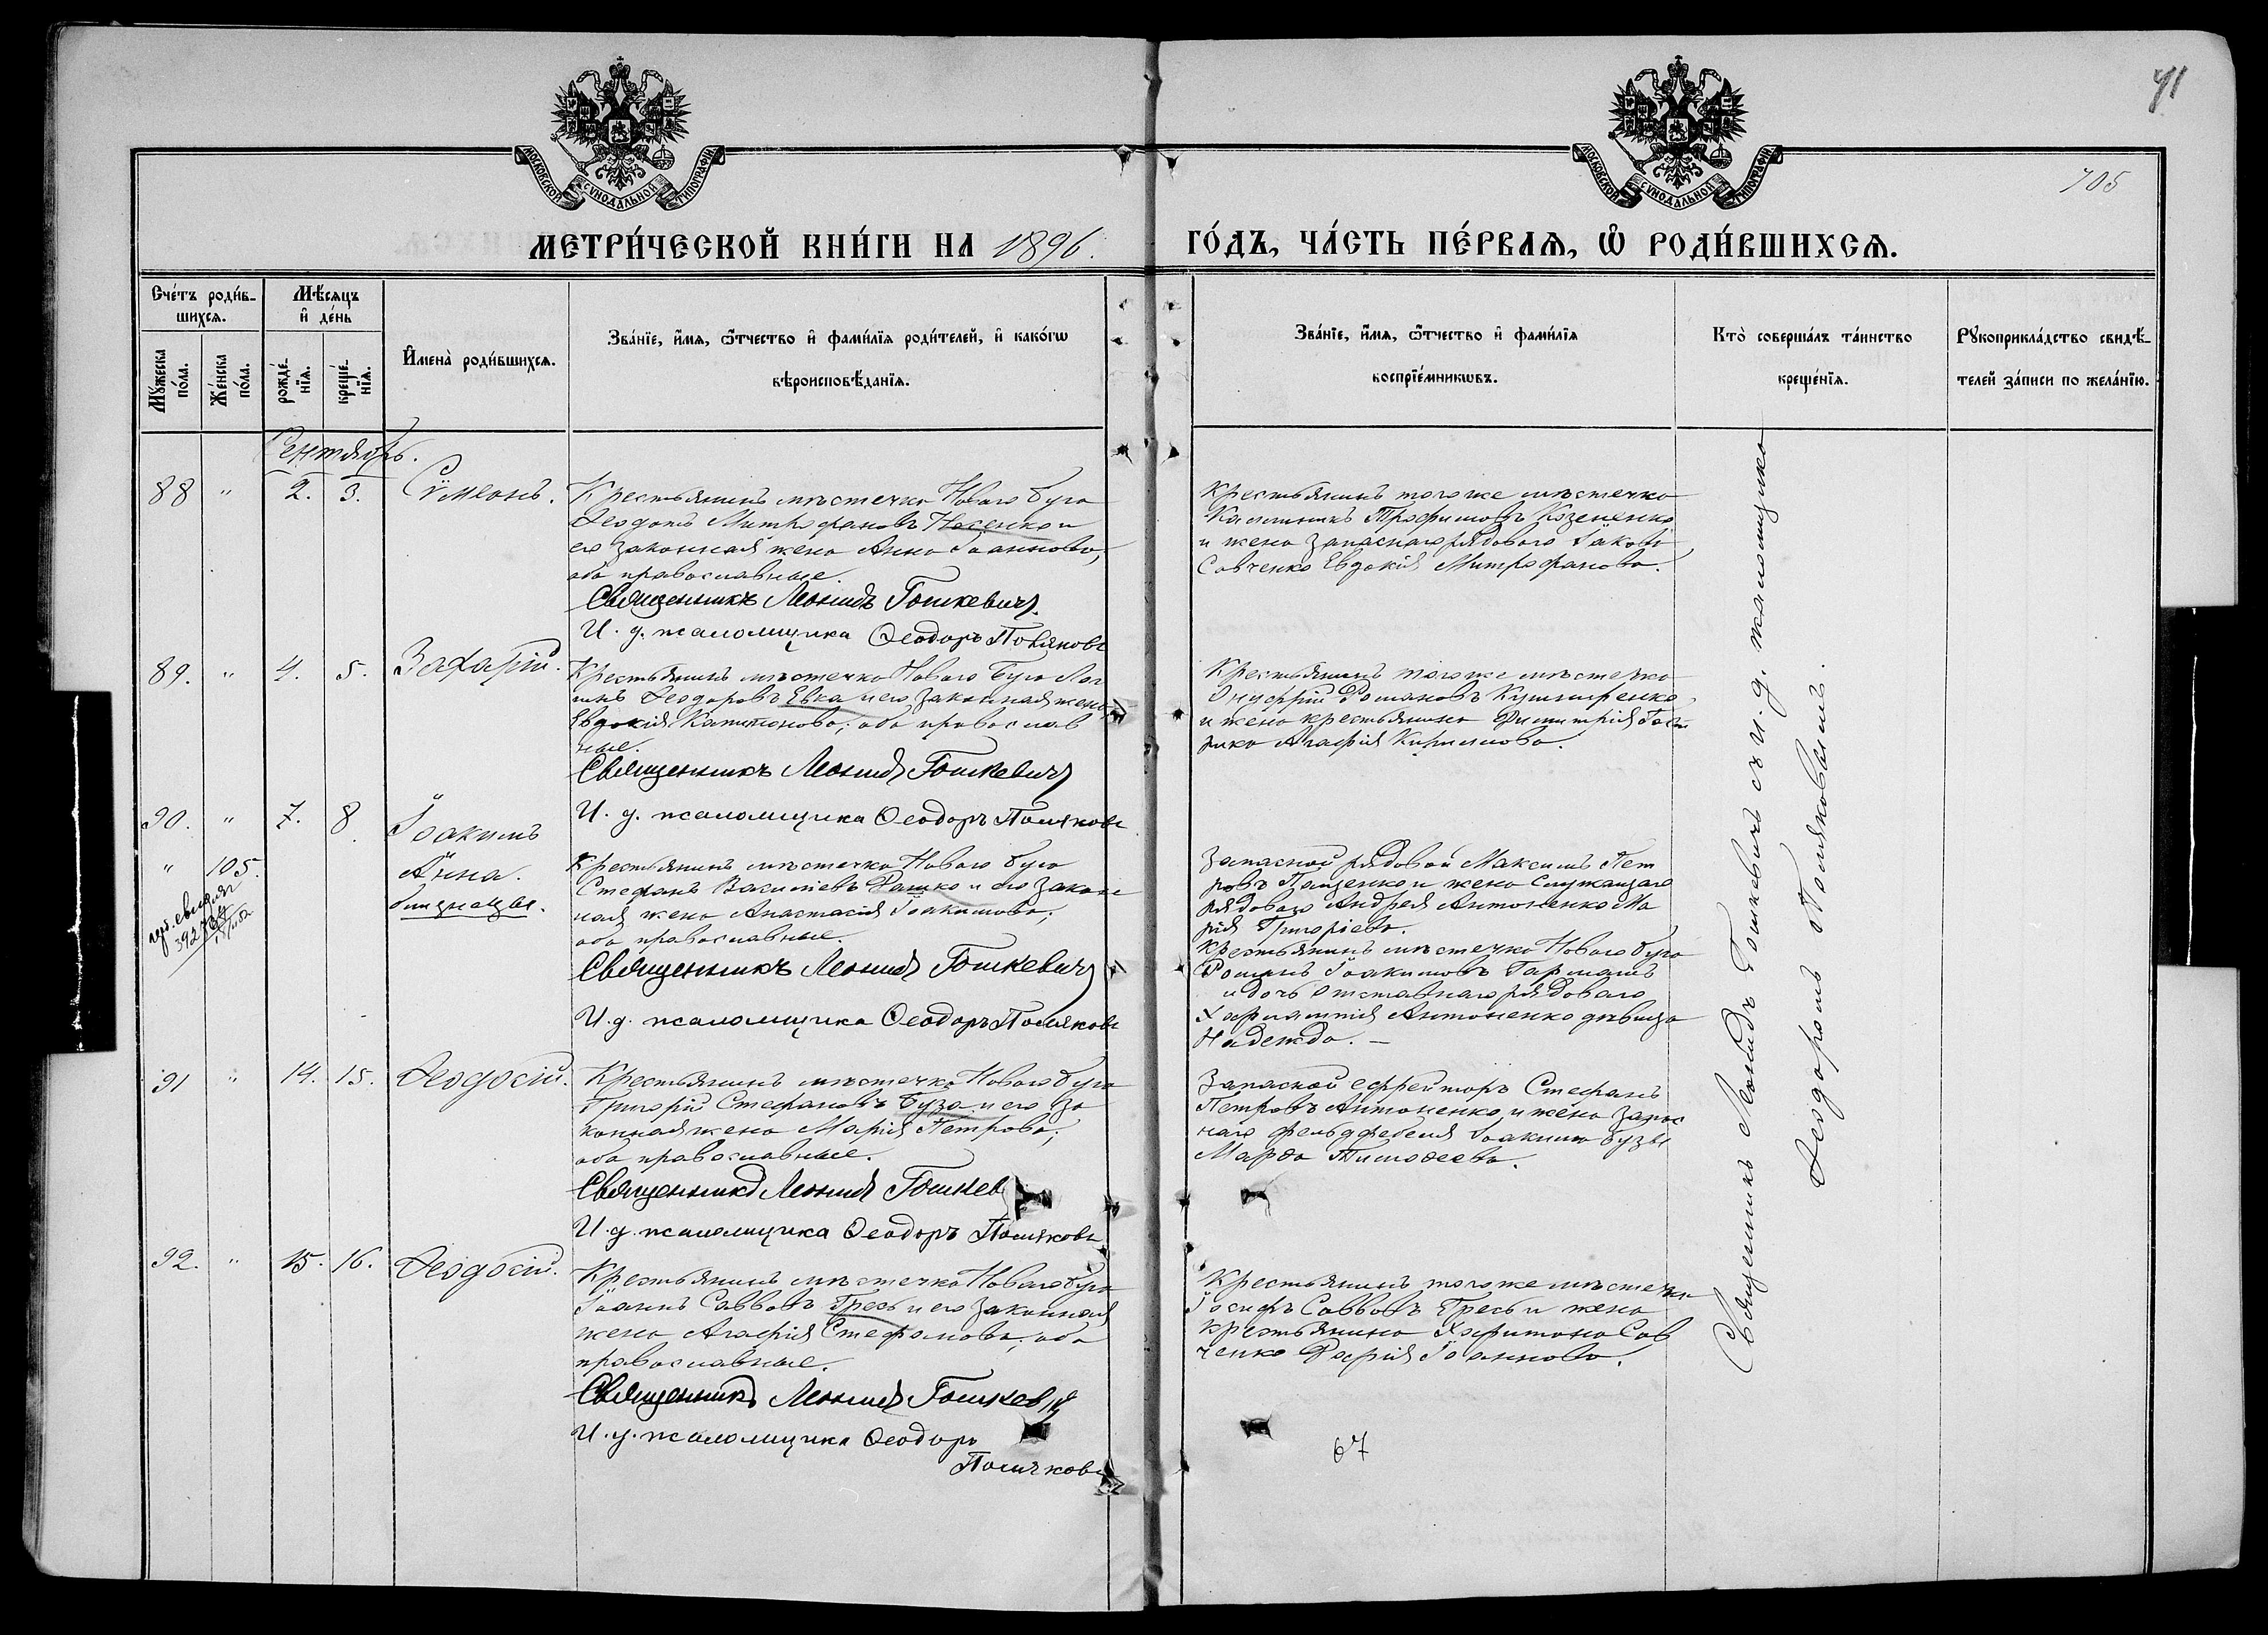 41
705
МОСКОВСКОЙ СѴНОДАЛЬНОЙ ТИПОГРАФІИ
МОСКОВСКОЙ СѴНОДАЛЬНОЙ ТИПОГРАФІИ
МЕТРИ́ЧЕСКОЙ КНИ́ГИ НА 1896. ГО́ДЪ, ЧА́СТЬ ПЕ́РВАѦ, Ѽ РОДИ́ВШИХСѦ.
Сче́тъ роди́в-
шихсѧ.
Мꙋ́жеска по́ла.
Же́нска по́ла.
Мѣ́сѧцъ
и҆ де́нь
рожде́-
нїѧ.
креще́-
нїѧ.
И҆мена̀ роди́вшихсѧ.
Зва́нїе, и҆́мѧ, ѻ҆́тчество и҆ фами́лїѧ роди́телей, и҆ како́гѡ
вѣроисповѣ́данїѧ.
Зва́нїе, и҆́мѧ, ѻ҆́тчество и҆ фами́лїѧ
воспрїе́мникѡвъ.
Кто̀ соверша́лъ та́инство
креще́нїѧ.
Рꙋкоприкла́дство свидѣ́-
телей за́писи по жела́нїю.
Сентябрь.
88 " 2. 3. Сѵмеонъ.
Крестьянинъ мѣстечка Новаго Буга
Ѳеодотъ Митрофановъ Носенко и
его законная жена Анна Іоаннова,
оба православные.
Священникъ Леонидъ Гошкевичъ
И. д. псаломщика Ѳеодоръ Поляковъ
Крестьянинъ того же мѣстечка
Каллиникъ Трофимовъ
и жена запаснаго рядового Іакова
Савченко Евдокія Митрофанова.
89. " 4. 5. Захарій.
Крестьянинъ мѣстечка Новаго Буга Лог
инъ Ѳеодоровъ Евка и его законная жена
Евдокія Капитонова; оба православ
ные.
Священникъ Леонидъ Гошкевичъ
И. д. псаломщика Ѳеодоръ Поляковъ
Крестьянинъ того же мѣстечка
Онуфрій Романовъ Кушниренко
и жена крестьянина Димитрія
Агафія Кириллова.
90. " 7. 8 Іоакимъ
" 105. Анна.
близнецы.
392764
Крестьянинъ мѣстечка Новаго Буга
Стефанъ Васильевъ Рашко и его закон
ная жена Анастасія Іоакимова;
оба православные.
Священникъ Леонидъ Гошкевичъ
И. д. псаломщика Ѳеодоръ Поляковъ
Запасной рядовой Максимъ Пет
ровъ Пащенко и жена служащаго
рядового Андрея Антоненко Ма
рія Григоріева.
Крестьянинъ мѣстечка Новаго Буга
Романъ Іоакимовъ Гармашъ
и дочь отставнаго рядового
Харлампія Антоненко дѣвица
Надежда. —
91 " 14. 15. Ѳеодосій.
Крестьянинъ мѣстечка Новаго Буга
Григорій Стефановъ Буза и его за
конная жена Марія Петрова;
оба православные.
Священникъ Леонидъ Гошкев
И. д. псаломщика Ѳеодоръ Поляковъ
Запасной ефрейторъ Стефанъ
Петровъ Антоненко и жена запас
наго фельдфебеля Іоакима Бузы
Марѳа Тимоѳеева.
92. " 15. 16. Ѳеодосій.
Крестьянинъ мѣстечка Новаго Буга
Іоаннъ Саввовъ Гресь и его законная
жена Агафія Стефанова, оба
православные.
Священникъ Леонидъ Гошкевичъ
И. д. псаломщика Ѳеодоръ
Поляковъ
Крестьянинъ того же мѣстечка
Іосифъ Саввовъ Гресь и жена
крестьянина Харитона Сав
ченко Дарія Іоаннова.
67
Священникъ Леонидъ Гошкевичъ съ и. д. псаломщика
Ѳеодоромъ Поляковымъ.